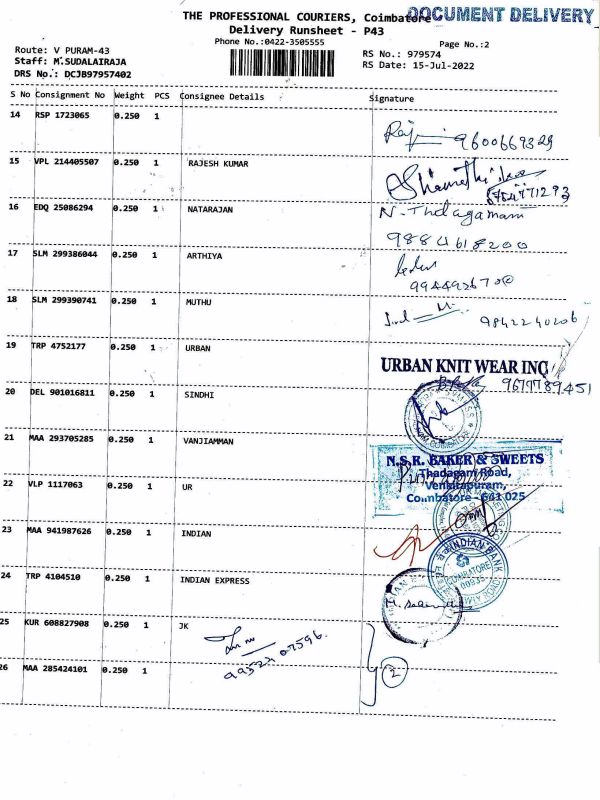 THE PROFESSIONAL COURIERS, Coimbatore
DOCUMENT DELIVERY
Delivery Runsheet - P43
Phone No.:0422-3505555
Page No.:2
Route: V PURAM-43
RS No.: 979574
Staff: M.SUDALAIRAJA
RS Date: 15-Jul-2022
DRS No.: DCJB97957402
S No Consignment No Weight PCS Consignee Details Signature
14 RSP 1723065 0.250 1
9600669329
15 VPL 214405507 0.250 1 RAJESH KUMAR
16 EDQ 25086294 0.250 1 NATARAJAN N. Thdagamani
9884618200
17 SLM 299386044 0.250 1 ARTHIYA
18 SLM 299390741 0.250 1 MUTHU
9842240206
19 TRP 4752177 0.250 1 URBAN
URBAN KNIT WEAR INC
9677789451
20 DEL 901016811 0.250 1 SINDHI
21 MAA 293705285 0.250 1 VANJIAMMAN
N.S.R. BAKER & SWEETS
Thadagam Road,
Venkitapuram,
Coimbatore - 641 025
22 VLP 1117063 0.250 1 UR
23 MAA 941987626 0.250 1 INDIAN
INDIAN BANK
COIMBATORE
00935
24 TRP 4104510 0.250 1 INDIAN EXPRESS
25 KUR 608827908 0.250 1 JK
26 MAA 285424101 0.250 1
2